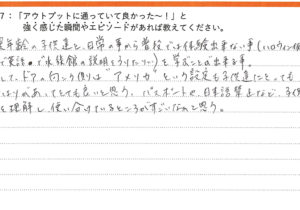 7：「アウトプットに通っていて良かった～！」と
強く感じた瞬間やエピソードがあれば教えてください。
年齢の子供達と、日常の事から普段では体験出来ない事（ハロウィン
で英語で水族館の説明を
を学ぶことが出来る事。
して、ドアの向こう側は"アメリカ"という設定も子供達にとっても
があってとても良いと思う。パスポートや、日本語禁止など、子
を理解し使い分けているところがすごいなあと思う。